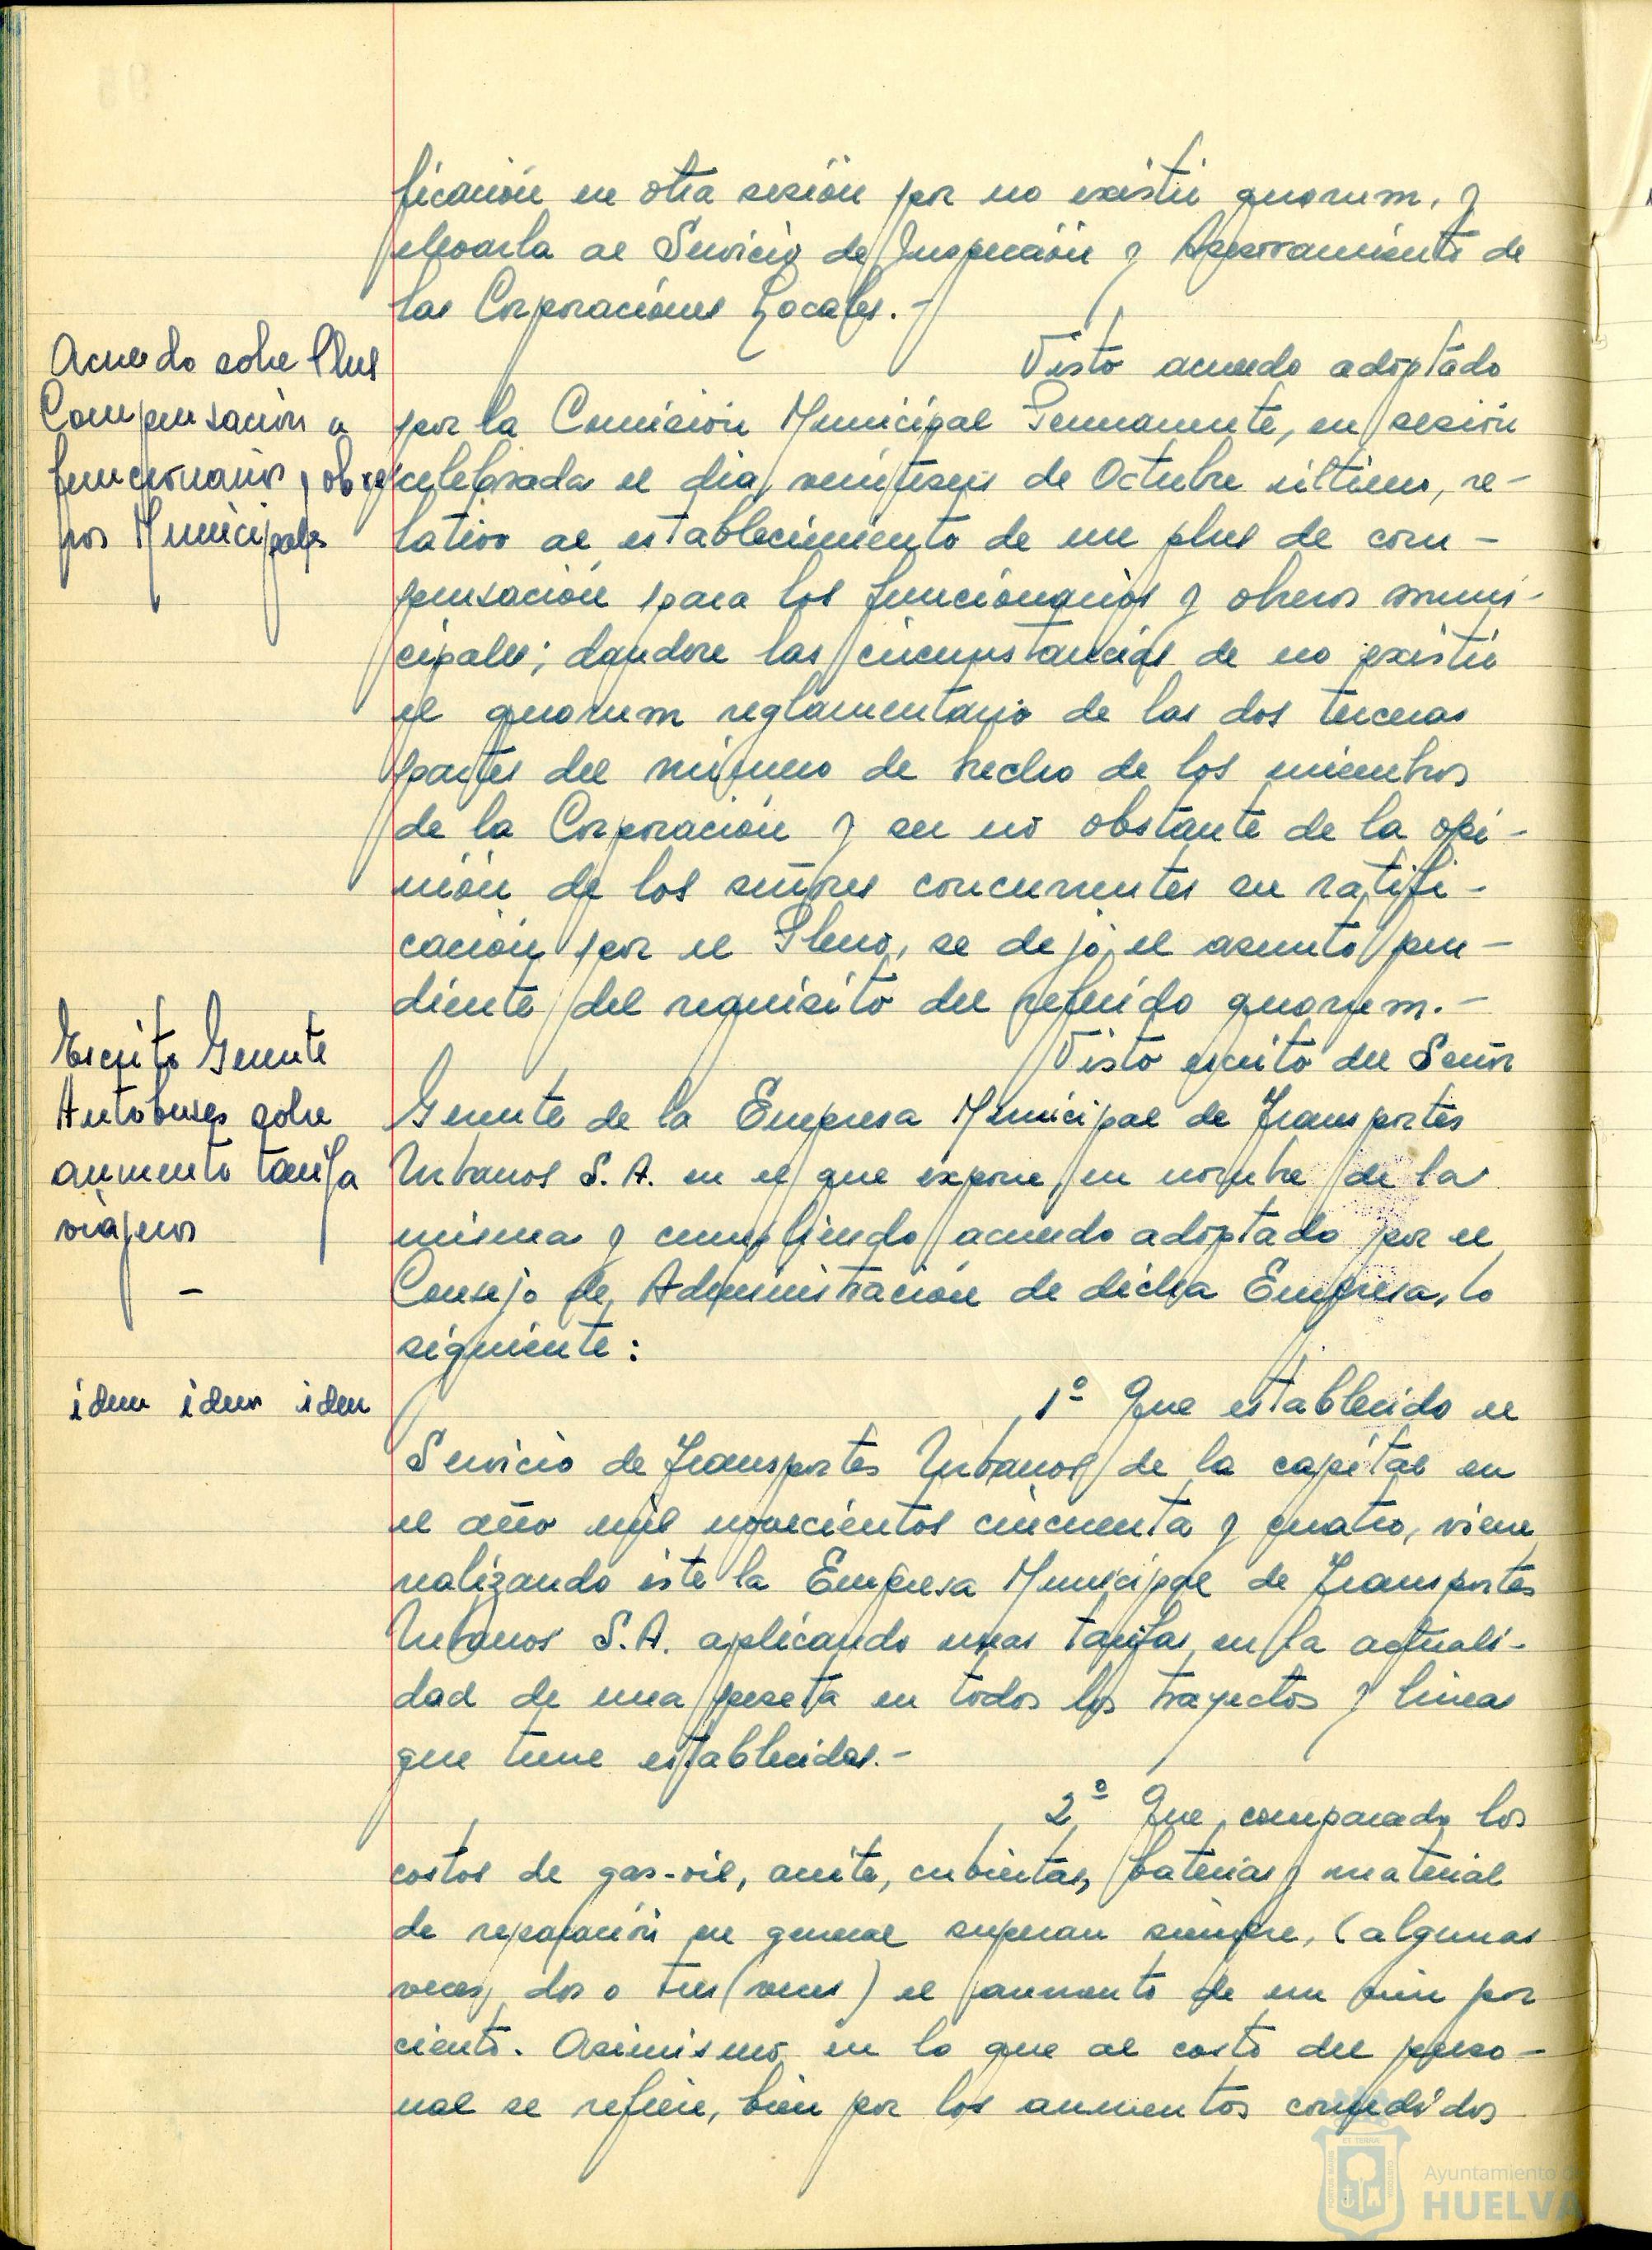 ficación en otra sesión por no existir quorum, y
elevarla al Servicio de Inspección y Asesoramiento de
las Corporaciones Locales.-
Acuerdo sobre Plus
Compensación a
funcionarios y obre
ros Municipales
Visto acuerdo adoptado
por la Comisión Municipal Permanente, en sesión
celebrada el dia veintiseis de Octubre último, re-
lativo al establecimiento de un plus de com-
pensación para los funcionarios y obreros muni-
cipales; dandose las circunstancias de no existir
el quorum reglamentario de las dos terceras
partes del número de hecho de los miembros
de la Corporación y en no obstante de la opi-
nión de los señores concurrentes en ratifi-
cación por el Pleno, se dejó el asunto pen-
diente del requisito del referido quorum.-
Escrito Gerente
Autobuses sobre
aumento tarifa
viajeros
-
Visto escrito del Señor
Gerente de la Empresa Municipal de Transportes
Urbanos S.A. en el que expone en nombre de la
misma y cumpliendo acuerdo adoptado por el
Consejo de Administración de dicha Empresa, lo
siguiente:
idem idem idem
1º Que establecido el
Servicio de Transportes Urbanos de la capital en
el año mil novecientos cincuenta y cuatro, viene
realizando éste la Empresa Municipal de Transportes
Urbanos S.A. aplicando unas tarifas en la actuali-
dad de una peseta en todos los trayectos y lineas
que tiene establecidas.-
2º Que comparado los
costos de gas-oil, aceite, cubiertas, baterias y material
de reparación en general superan siempre, (algunas
veces dos o tres veces) el aumento de un cien por
ciento. Asimismo en lo que al costo del perso-
nal se refiere, bien por los aumentos concedidos
Ayuntamiento de
HUELVA